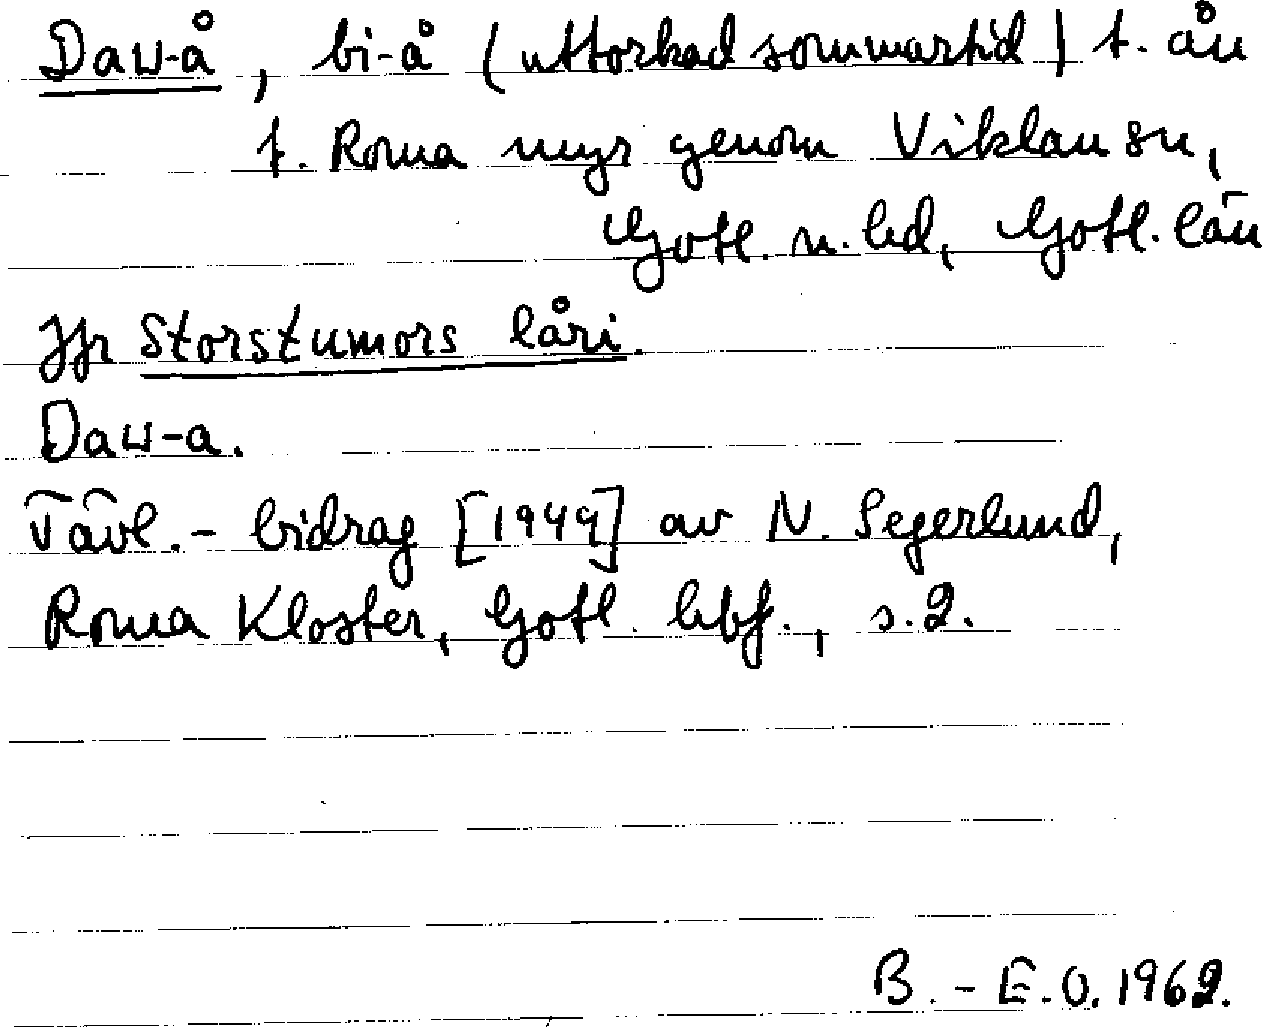 Daw-å, bi-å (uttorkad sommartid) t. ån
f. Roma myr genom Viklau sn,
Gotl. n. hd, Gotl. län
Jfr Storstumors låri.
Daw-a.
Tävl.- bidrag [1949] av N. Segerlund,
Roma Kloster, Gotl. hbf., s.2.
B.-E.O. 1962.